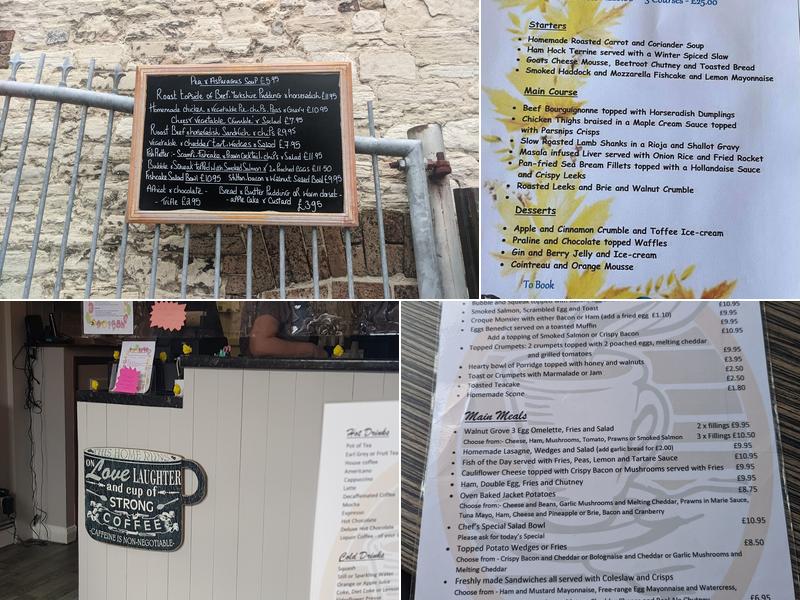 Pea & Asparagus Soup £5.95
Roast topside of Beef, Yorkshire Pudding & horseradish £11.95
Homemade chicken & Vegetable Pie, chips, Peas & Gravy £10.95
Cheesy Vegetable Crumble & Salad £7.95
Roast Beef & horseradish Sandwich & chips £9.95
Vegetable & cheddar tart, wedges & Salad £7.95
Fish Platter - Scampi, Fishcake & Prawn Cocktail, chips & Salad £11.95
Bubble & Squeak topped with Smoked Salmon & 2 Poached Eggs £11.50
Fishcake Salad Bowl £10.95 Stilton, bacon & Walnut Salad Bowl £9.95
Apricot & chocolate - Bread & Butter Pudding or Warm dorset -
- Trifle £3.95 - apple Cake & Custard £3.95
3 Courses - £25.00
Starters
Homemade Roasted Carrot and Coriander Soup
Ham Hock Terrine served with a Winter Spiced Slaw
Goats Cheese Mousse, Beetroot Chutney and Toasted Bread
Smoked Haddock and Mozzarella Fishcake and Lemon Mayonnaise
Main Course
Beef Bourguignonne topped with Horseradish Dumplings
Chicken Thighs braised in a Maple Cream Sauce topped
with Parsnips Crisps
Slow Roasted Lamb Shanks in a Rioja and Shallot Gravy
Masala infused Liver served with Onion Rice and Fried Rocket
Pan-fried Sea Bream Fillets topped with a Hollandaise Sauce
and Crispy Leeks
Roasted Leeks and Brie and Walnut Crumble
Desserts
Apple and Cinnamon Crumble and Toffee Ice-cream
Praline and Chocolate topped Waffles
Gin and Berry Jelly and Ice-cream
Cointreau and Orange Mousse
To Book
THIS HOME RUNS
ON Love LAUGHTER
and cup of
STRONG
COFFEE
-CAFFEINE IS NON-NEGOTIABLE-
Hot Drinks
Pot of Tea
Earl Grey or Fruit Tea
House coffee
Americano
Cappuccino
Latte
Decaffeinated Coffee
Mocha
Espresso
Hot Chocolate
Deluxe Hot Chocolate
Liqueur Coffee - of your
Cold Drinks
Squash
Still or Sparkling Water
Orange or Apple Juice
Coke, Diet Coke or Lemon
Bubble and Squeak topped with £10.95
Smoked Salmon, Scrambled Egg and Toast £9.95
Croque Monsier with either Bacon or Ham (add a fried egg £1.10) £9.95
Eggs Benedict served on a toasted Muffin £10.95
Add a topping of Smoked Salmon or Crispy Bacon
Topped Crumpets: 2 crumpets topped with 2 poached eggs, melting cheddar
and grilled tomatoes £9.95
Hearty bowl of Porridge topped with honey and walnuts £3.95
Toast or Crumpets with Marmalade or Jam £2.50
Toasted Teacake £2.50
Homemade Scone £1.80
Main Meals
Walnut Grove 3 Egg Omelette, Fries and Salad 2 x fillings £9.95
Choose from:- Cheese, Ham, Mushrooms, Tomato, Prawns or Smoked Salmon 3 x Fillings £10.50
Homemade Lasagne, Wedges and Salad (add garlic bread for £2.00) £9.95
Fish of the Day served with Fries, Peas, Lemon and Tartare Sauce £10.95
Cauliflower Cheese topped with Crispy Bacon or Mushrooms served with Fries £9.95
Ham, Double Egg, Fries and Chutney £9.95
Oven Baked Jacket Potatoes £8.75
Choose from:- Cheese and Beans, Garlic Mushrooms and Melting Cheddar, Prawns in Marie Sauce,
Tuna Mayo, Ham, Cheese and Pineapple or Brie, Bacon and Cranberry
Chef's Special Salad Bowl £10.95
Please ask for today's Special
Topped Potato Wedges or Fries £8.50
Choose from - Crispy Bacon and Cheddar or Bolognaise and Cheddar or Garlic Mushrooms and
Melting Cheddar
Freshly made Sandwiches all served with Coleslaw and Crisps
Choose from - Ham and Mustard Mayonnaise, Free-range Egg Mayonnaise and Watercress,
£6.95